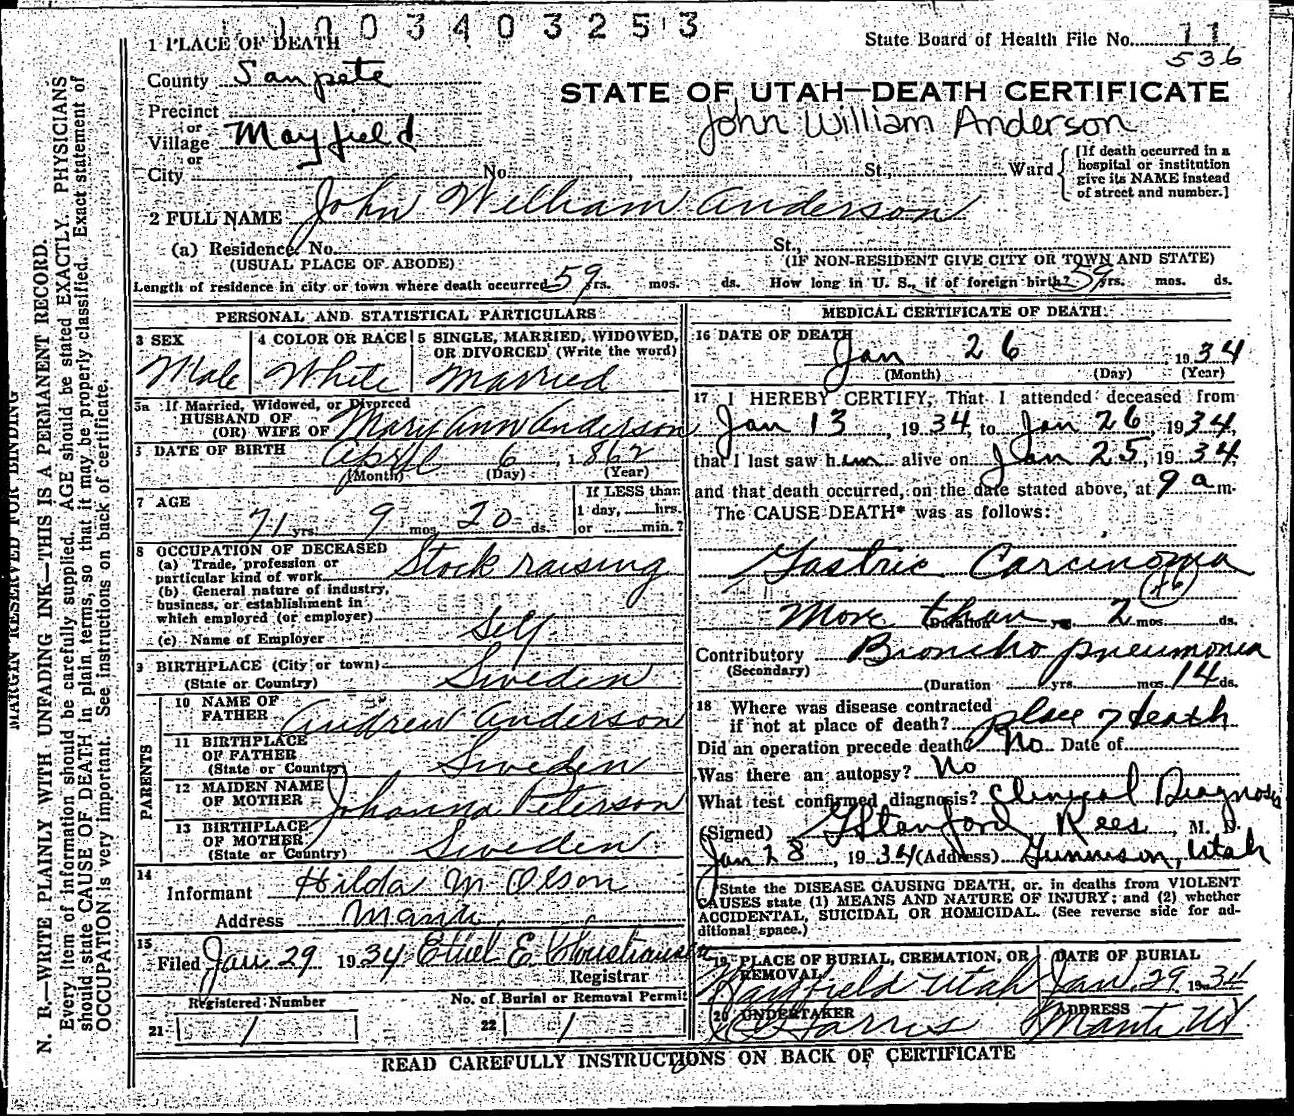 1003403253
State Board of Health File No. 11
536
1 PLACE OF DEATH
County Sanpete
STATE OF UTAH—DEATH CERTIFICATE
John William Anderson
Precinct
or
Village Mayfield
or
City No. , St., Ward
[If death occurred in a
hospital or institution
give its NAME instead
of street and number.]
2 FULL NAME John William Anderson
(a) Residence. No. St.,
(USUAL PLACE OF ABODE) (IF NON-RESIDENT GIVE CITY OR TOWN AND STATE)
Length of residence in city or town where death occurred 59 yrs. mos. ds. How long in U. S., if of foreign birth? 59 yrs. mos. ds.
PERSONAL AND STATISTICAL PARTICULARS
3 SEX
Male
4 COLOR OR RACE
White
5 SINGLE, MARRIED, WIDOWED,
OR DIVORCED (Write the word)
Married
5a If Married, Widowed, or Divorced
HUSBAND OF
(OR) WIFE OF Mary Ann Anderson
DATE OF BIRTH April 6, 1862
(Month) (Day) (Year)
7 AGE
71 yrs. 9 mos. 20 ds.
If LESS than
1 day, hrs.
or min.?
8 OCCUPATION OF DECEASED
(a) Trade, profession or
particular kind of work Stock raising
(b) General nature of industry,
business, or establishment in
which employed (or employer)
(c) Name of Employer Self
9 BIRTHPLACE (City or town)
(State or Country) Sweden
PARENTS
10 NAME OF
FATHER Andrew Anderson
11 BIRTHPLACE
OF FATHER
(State or Country) Sweden
12 MAIDEN NAME
OF MOTHER Johanna Peterson
13 BIRTHPLACE
OF MOTHER
(State or Country) Sweden
14
Informant Hilda M Olson
Address Manti
15
Filed Jan 29 1934 Ethel E Christiansen
Registrar
Registered Number
21 1
No. of Burial or Removal Permit
22 1
MEDICAL CERTIFICATE OF DEATH
16 DATE OF DEATH
Jan 26 1934
(Month) (Day) (Year)
17 I HEREBY CERTIFY, That I attended deceased from
Jan 13, 1934, to Jan 26, 1934,
that I last saw him alive on Jan 25, 1934,
and that death occurred, on the date stated above, at 9 a m.
The CAUSE DEATH* was as follows:
Gastric Carcinoma
46
More than 2 mos. ds.
(Duration yrs.
Contributory Broncho pneumonia
(Secondary)
(Duration yrs. mos. 14 ds.
18 Where was disease contracted
if not at place of death? place of death
Did an operation precede death? No Date of
Was there an autopsy? No
What test confirmed diagnosis? Clinical Diagnosis
(Signed) G Stanford Rees, M. D.
Jan 28, 1934 (Address) Gunnison, Utah
State the DISEASE CAUSING DEATH, or, in deaths from VIOLENT
CAUSES state (1) MEANS AND NATURE OF INJURY; and (2) whether
ACCIDENTAL, SUICIDAL OR HOMICIDAL. (See reverse side for ad-
ditional space.)
19 PLACE OF BURIAL, CREMATION, OR
REMOVAL
Mayfield Utah
DATE OF BURIAL
Jan. 29. 1934
20 UNDERTAKER
Harris
ADDRESS
Manti Ut
READ CAREFULLY INSTRUCTIONS ON BACK OF CERTIFICATE
MARGIN RESERVED FOR BINDING
N. B.—WRITE PLAINLY WITH UNFADING INK—THIS IS A PERMANENT RECORD.
Every item of information should be carefully supplied. AGE should be stated EXACTLY. PHYSICIANS
should state CAUSE OF DEATH in plain terms, so that it may be properly classified. Exact statement of
OCCUPATION is very important. See instructions on back of certificate.